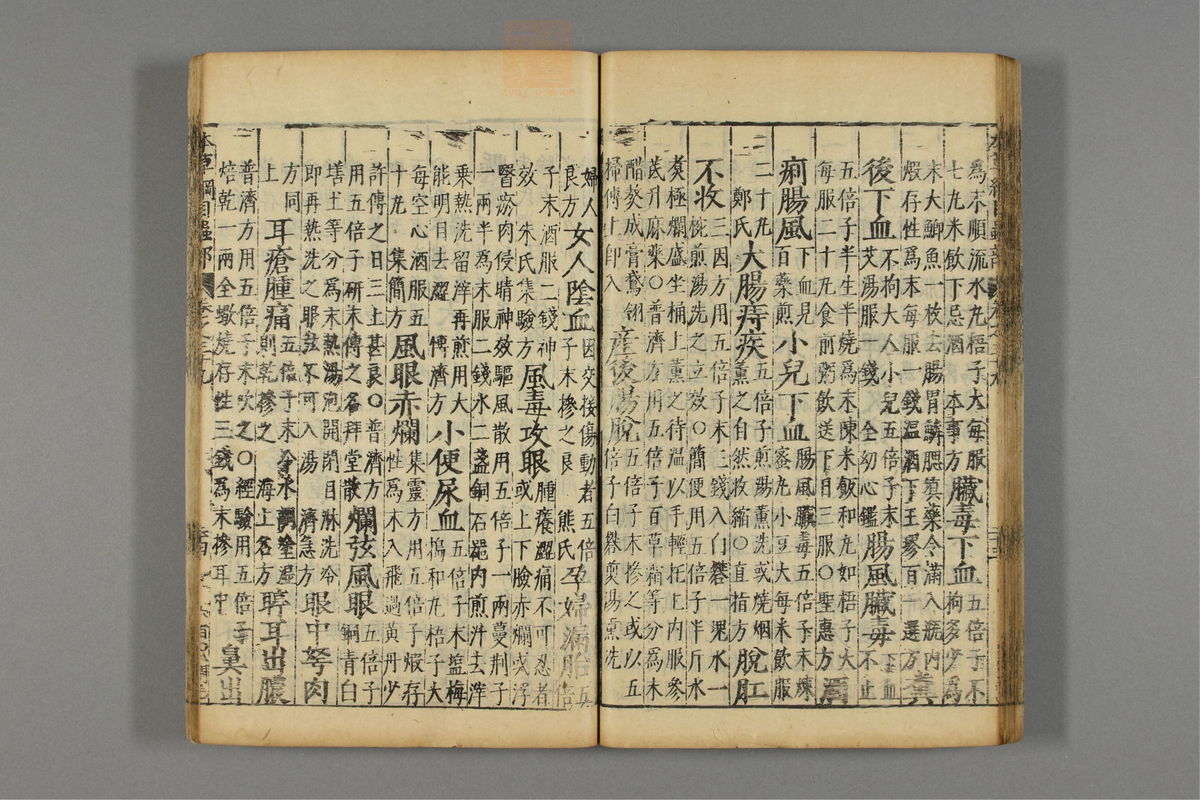 為末順流水丸梧子大每服七丸米飲下忌酒 本事方 臟毒下血 五倍子不拘多少為
末大鯽魚一枚去腸胃鱗腮填藥令滿入瓶内煅存性為末每服一錢温酒下王璆百一選方 糞
後下血 不拘大人小兒五倍子末艾湯服一錢 全幼心鑑 腸風臟毒 下血不止
五倍子半生半燒為末陳米飯和丸如梧子大每服二十丸食前粥飲送下日三服○聖惠方 酒
痢腸風 下血見百藥煎 小兒下血 腸風臟毒五倍子末煉蜜丸小豆大每米飲服
二十丸 鄭氏 大腸痔疾 五倍子煎湯薰洗或燒烟薰之自然收縮○直指方 脫肛
不收 三因方用五倍子末三錢入白礬一塊水一椀煎湯洗之立效○簡便用五倍子半斤水
煑極爛盛坐桶上薰之待温以手輕托上内服參芪升麻藥○普濟方用五倍子百草霜等分為末
醋熬成膏鵞翎掃傅上即入 產後腸脫 五倍子末摻之或以五倍子白礬煎湯薰洗
婦人良方 女人陰血 因交接傷動者五倍子末摻之良 熊氏 孕婦漏胎 五倍
子末酒服二錢神效 朱氏集驗方 風毒攻眼 腫癢澀痛不可忍者或上下瞼赤爛或浮
瞖瘀肉侵睛神效驅風散用五倍子一兩蔓荆子一兩半為末服二錢水二盞銅石器内煎汁去滓
乘熱洗留滓再煎用大能明目去澀 博濟方 小便尿血 五倍子末塩梅搗和丸梧子大
每空心酒服五十丸 集簡方 風眼赤爛 集靈方用五倍子煅存性為末入飛過黄丹少
許傅之日三上甚良○普濟方用五倍子研末傅之名拜堂散 爛弦風眼 五倍子銅青白
墡土等分為末熱湯泡開閉目淋洗冷即再熱洗之眼弦不可入湯 濟急方 眼中弩肉
方同上 耳瘡腫痛 五倍子末冷水調塗濕則乾摻之 海上名方 聤耳出膿
普濟方用五倍子末吹之○經驗用五倍子焙乾一兩全蠍燒存性三錢為末摻耳中 鼻出
本草綱目蟲部